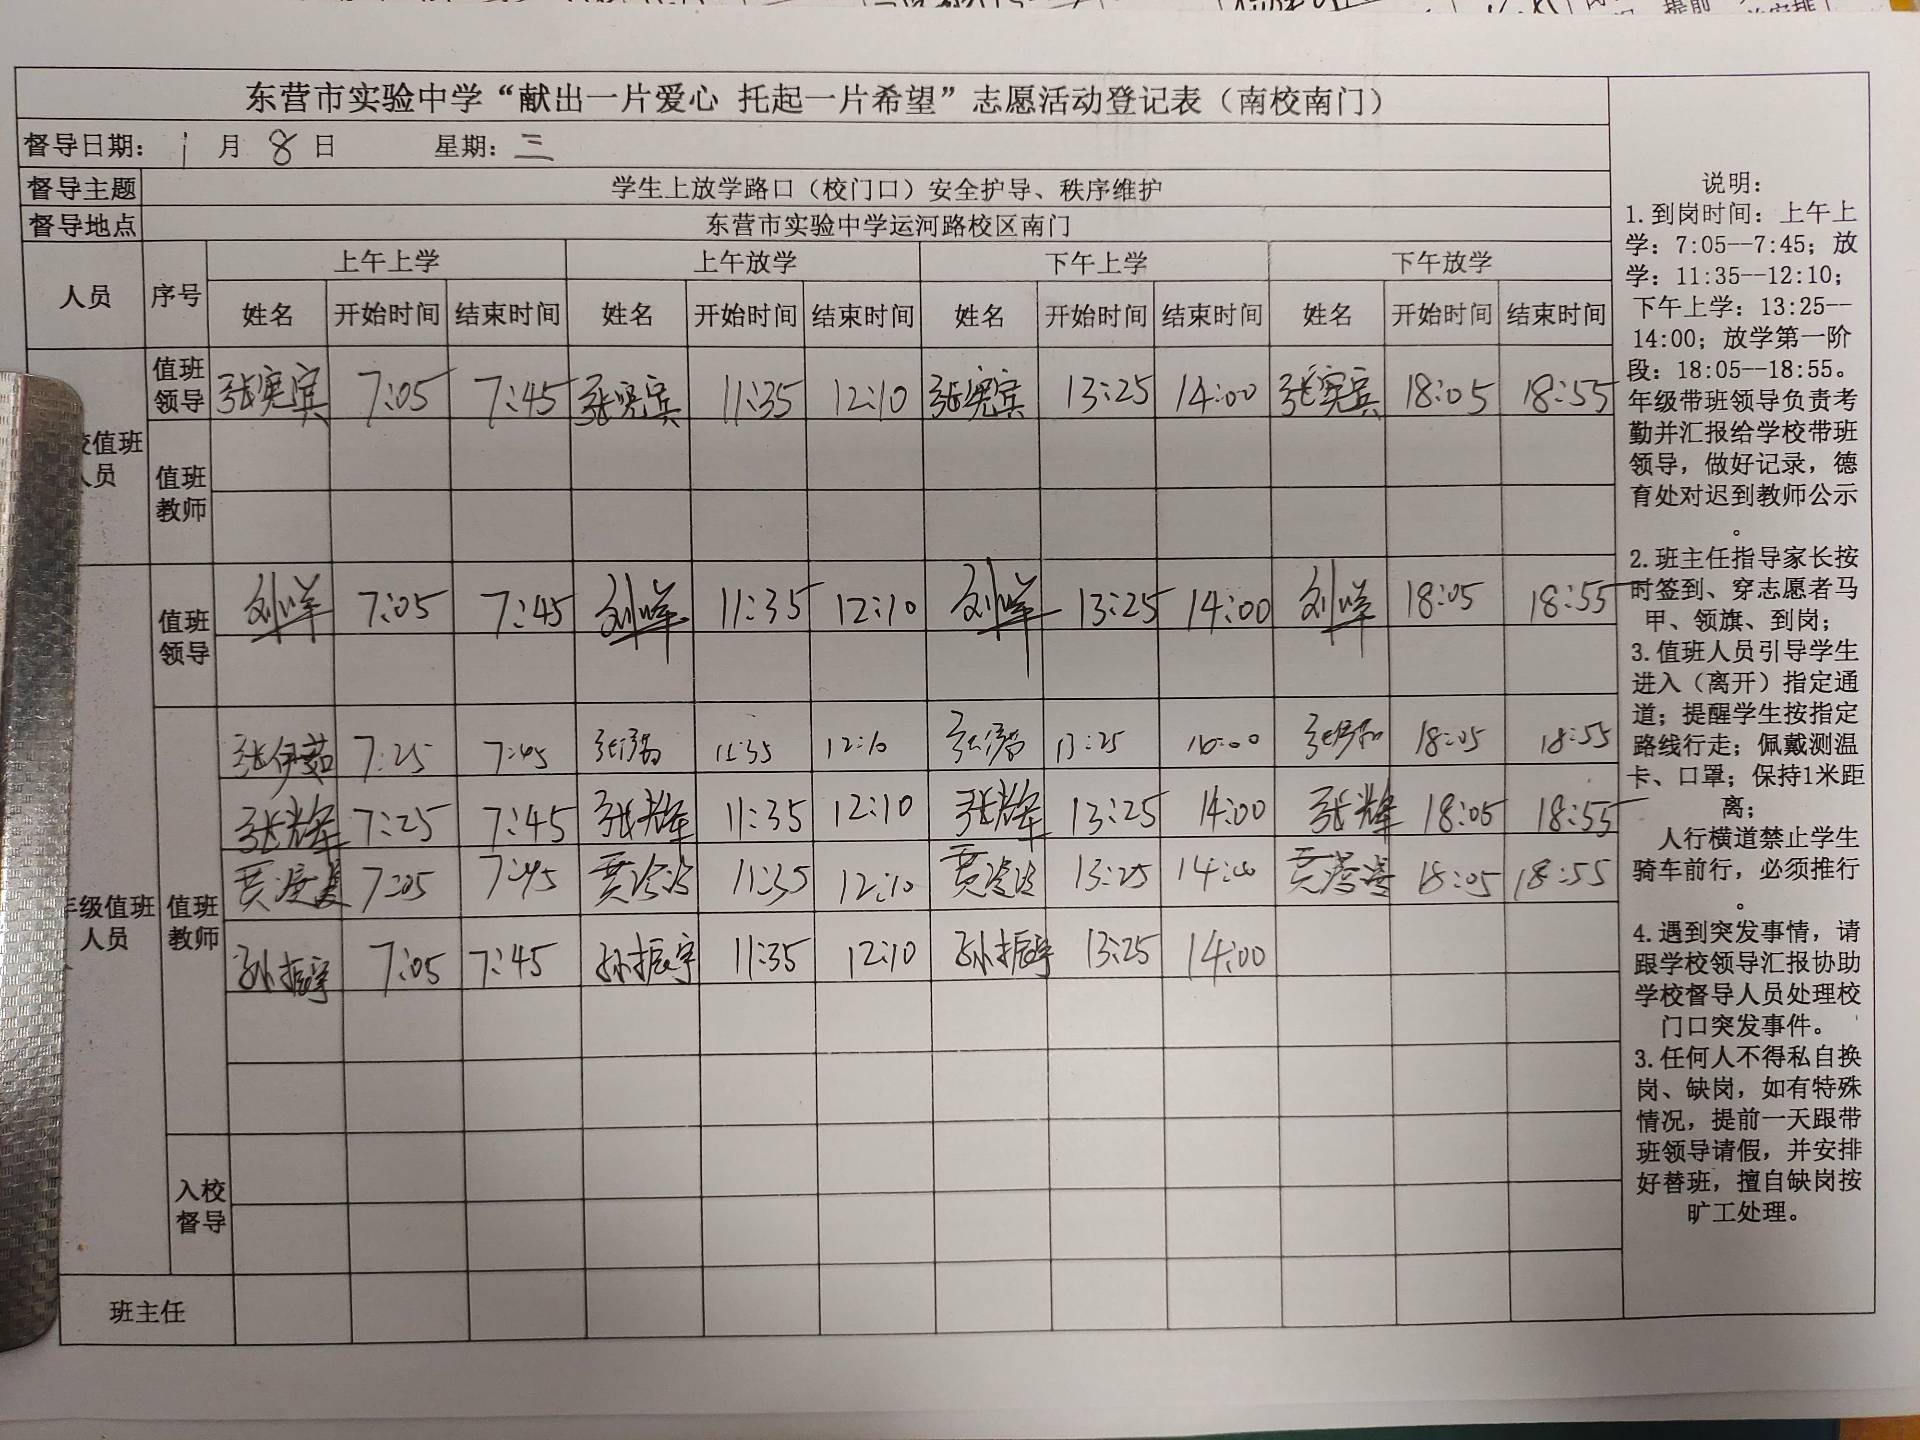 东营市实验中学“献出一片爱心 托起一片希望”志愿活动登记表（南校南门）
督导日期： 1 月 8 日 星期：三
督导主题 学生上放学路口（校门口）安全护导、秩序维护
督导地点 东营市实验中学运河路校区南门
人员 序号 上午上学 上午放学 下午上学 下午放学
姓名 开始时间 结束时间 姓名 开始时间 结束时间 姓名 开始时间 结束时间 姓名 开始时间 结束时间
校值班人员
值班领导 张宪宾 7:05 7:45 张宪宾 11:35 12:10 张宪宾 13:25 14:00 张宪宾 18:05 18:55
值班教师
年级值班人员
值班领导 7:05 7:45 11:35 12:10 13:25 14:00 18:05 18:55
值班教师
张伊茹 7:25 7:45 11:35 12:10 13:25 18:05 18:55
张辉 7:25 7:45 张辉 11:35 12:10 张辉 13:25 14:00 张辉 18:05 18:55
贾 7:05 7:45 贾 11:35 12:10 贾 13:25 14:00 贾 18:05 18:55
孙振宇 7:05 7:45 孙振宇 11:35 12:10 孙振宇 13:25 14:00
入校督导
班主任
说明：
1.到岗时间：上午上
学：7:05--7:45；放
学：11:35--12:10；
下午上学：13:25--
14:00；放学第一阶
段：18:05--18:55。
年级带班领导负责考
勤并汇报给学校带班
领导，做好记录，德
育处对迟到教师公示
。
2.班主任指导家长按
时签到、穿志愿者马
甲、领旗、到岗；
3.值班人员引导学生
进入（离开）指定通
道；提醒学生按指定
路线行走；佩戴测温
卡、口罩；保持1米距
离；
人行横道禁止学生
骑车前行，必须推行
。
4.遇到突发事情，请
跟学校领导汇报协助
学校督导人员处理校
门口突发事件。
3.任何人不得私自换
岗、缺岗，如有特殊
情况，提前一天跟带
班领导请假，并安排
好替班，擅自缺岗按
旷工处理。